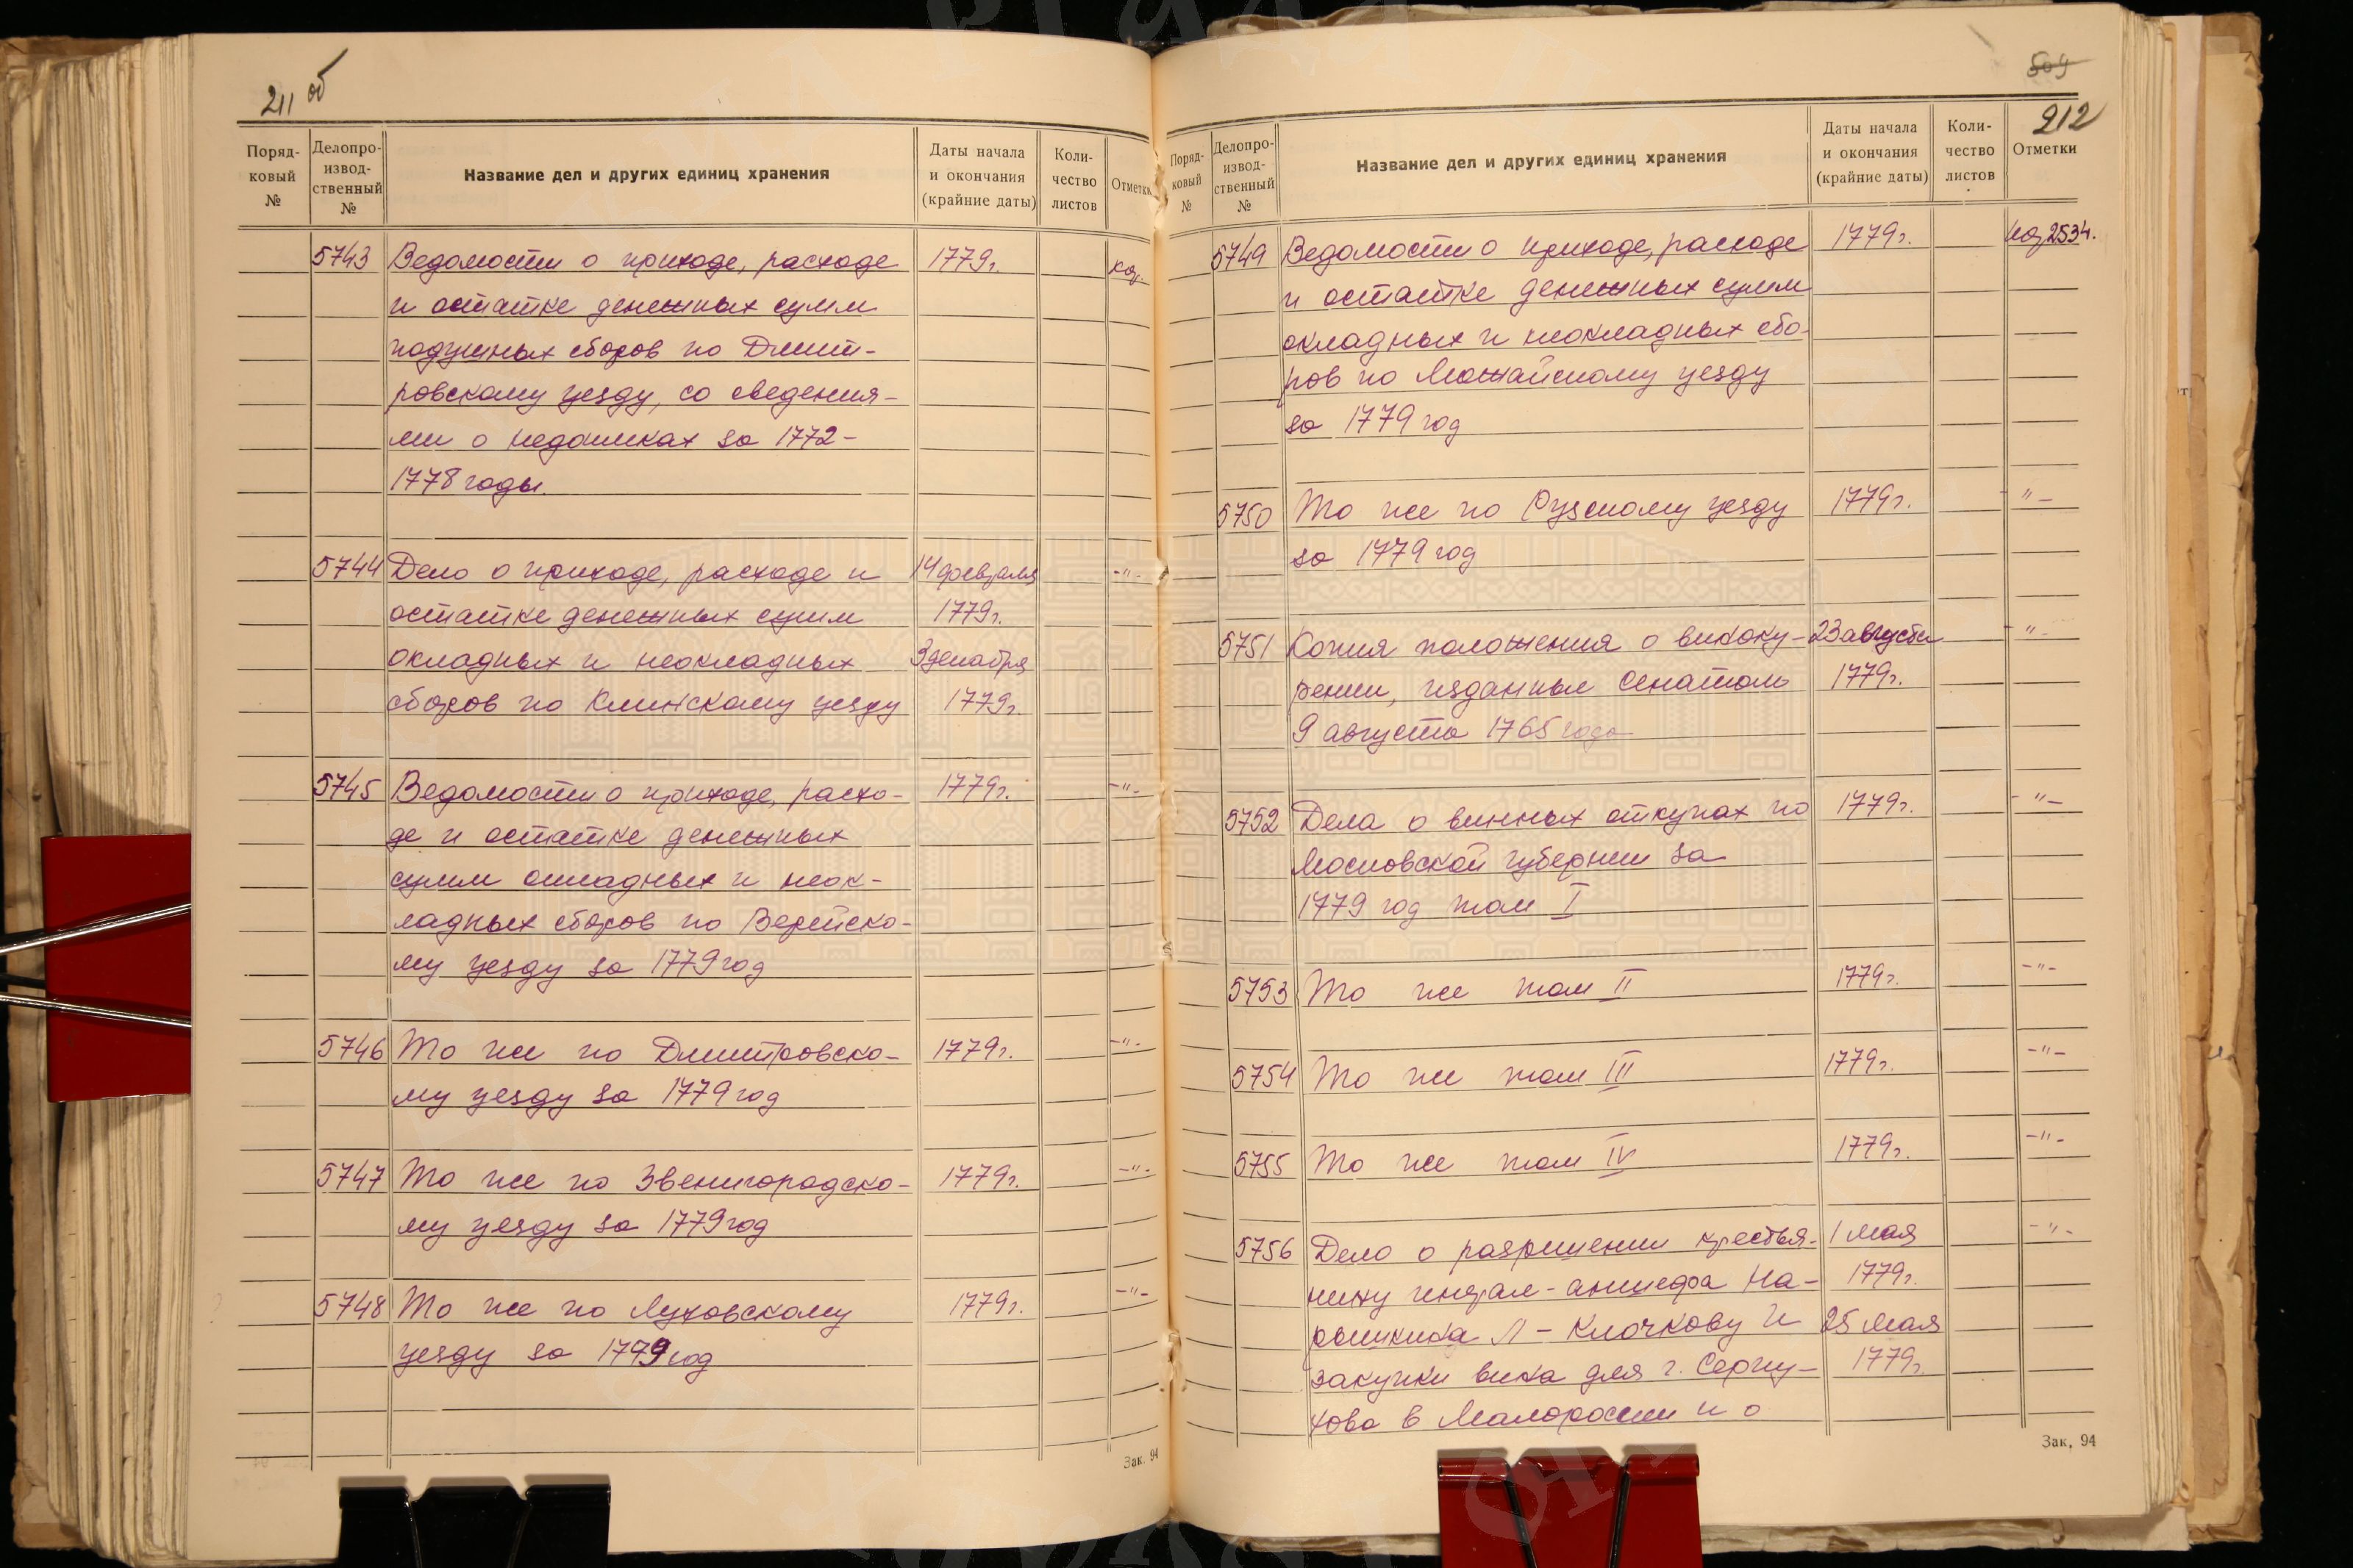 211 об
Поряд-
ковый
№
Делопро-
извод-
ственный
№
Название дел и других единиц хранения
Даты начала
и окончания
(крайние даты)
Коли-
чество
листов
Отметки
5743 Ведомости о приходе, расходе 1779г.
и остатке денежных сумм
подушных сборов по Дмит-
ровскому уезду, со сведения-
ми о недоимках за 1772-
1778 годы.
5744 Дело о приходе, расходе и 14 февраля -"-
остатке денежных сумм 1779г.
окладных и неокладных 3 декабря
сборов по Клинскому уезду 1779г.
5745 Ведомости о приходе, расхо- 1779г. -"-
де и остатке денежных
сумм окладных и неок-
ладных сборов по Верейско-
му уезду за 1779 год
5746 То же по Дмитровско- 1779г. -"-
му уезду за 1779 год
5747 То же по Звенигородско- 1779г. -"-
му уезду за 1779 год
5748 То же по Луховскому 1779г. -"-
уезду за 1779 год
Зак. 94
509
212
Поряд-
ковый
№
Делопро-
извод-
ственный
№
Название дел и других единиц хранения
Даты начала
и окончания
(крайние даты)
Коли-
чество
листов
Отметки
5749 Ведомости о приходе, расходе 1779г. 2534.
и остатке денежных сумм
окладных и неокладных сбо-
ров по Можайскому уезду
за 1779 год
5750 То же по Рузскому уезду 1779г. -"-
за 1779 год
5751 Копия положения о виноку- 23 августа -"-
рении, изданные Сенатом 1779г.
9 августа 1765 года
5752 Дела о винных откупах по 1779г. -"-
Московской губернии за
1779 год том I
5753 То же том II 1779г. -"-
5754 То же том III 1779г. -"-
5755 То же том IV 1779г. -"-
5756 Дело о разрешении крестья- 1 мая -"-
нину генерал-аншефа На- 1779г.
рышкина Л-Клочкову И 25 мая
закупки вина для г. Серпу- 1779г.
хова в Малороссии и о
Зак. 94